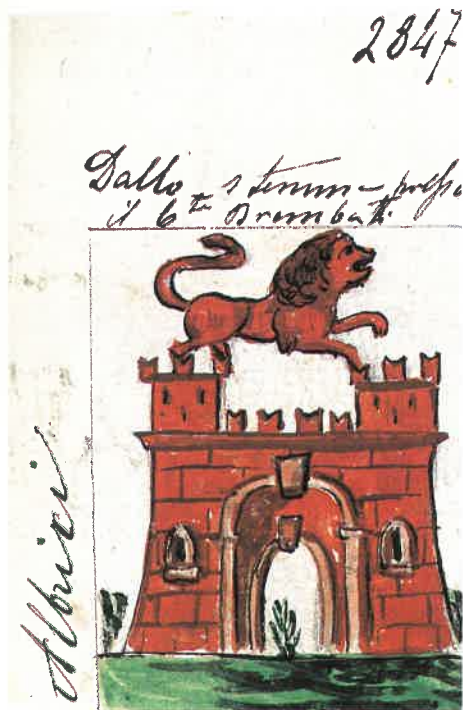 2847
Dallo stemma presso
il Cte Brembatti
Albrici